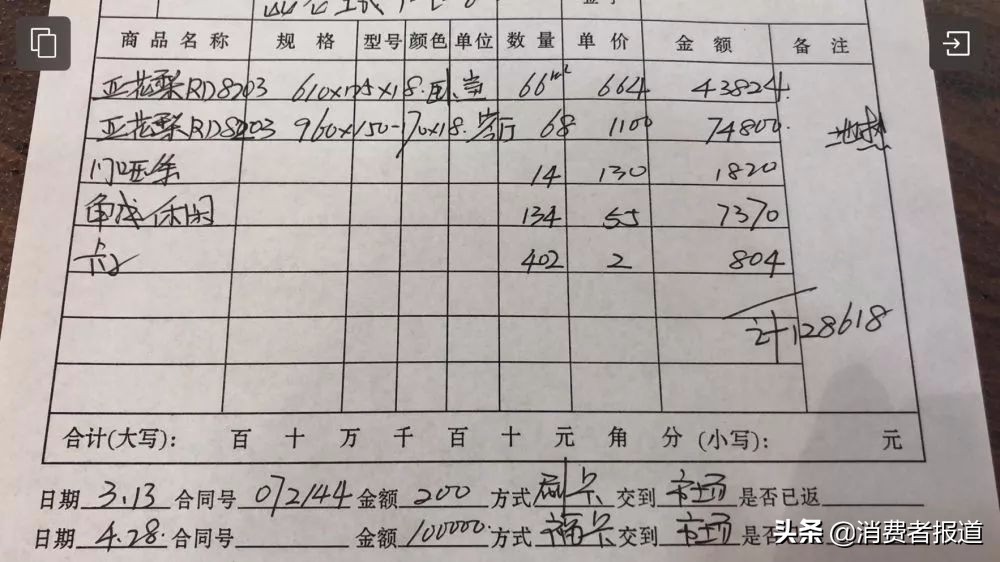 商品名称 规格 型号 颜色 单位 数量 单价 金额 备注
亚花梨RD8203 610×125×18 卧室 66m² 664 43824
亚花梨RD8203 960×150-170×18 客厅 68 1100 74800 地热
门压条 14 130 1820
休闲 134 55 7370
402 2 804
计128618
合计(大写): 百 十 万 千 百 十 元 角 分 (小写): 元
日期 3.13 合同号 072144 金额 200 方式 刷卡 交到 市场 是否已返
日期 4.28 合同号 金额 100000 方式 卡 交到 市场 是否
头条 @消费者报道